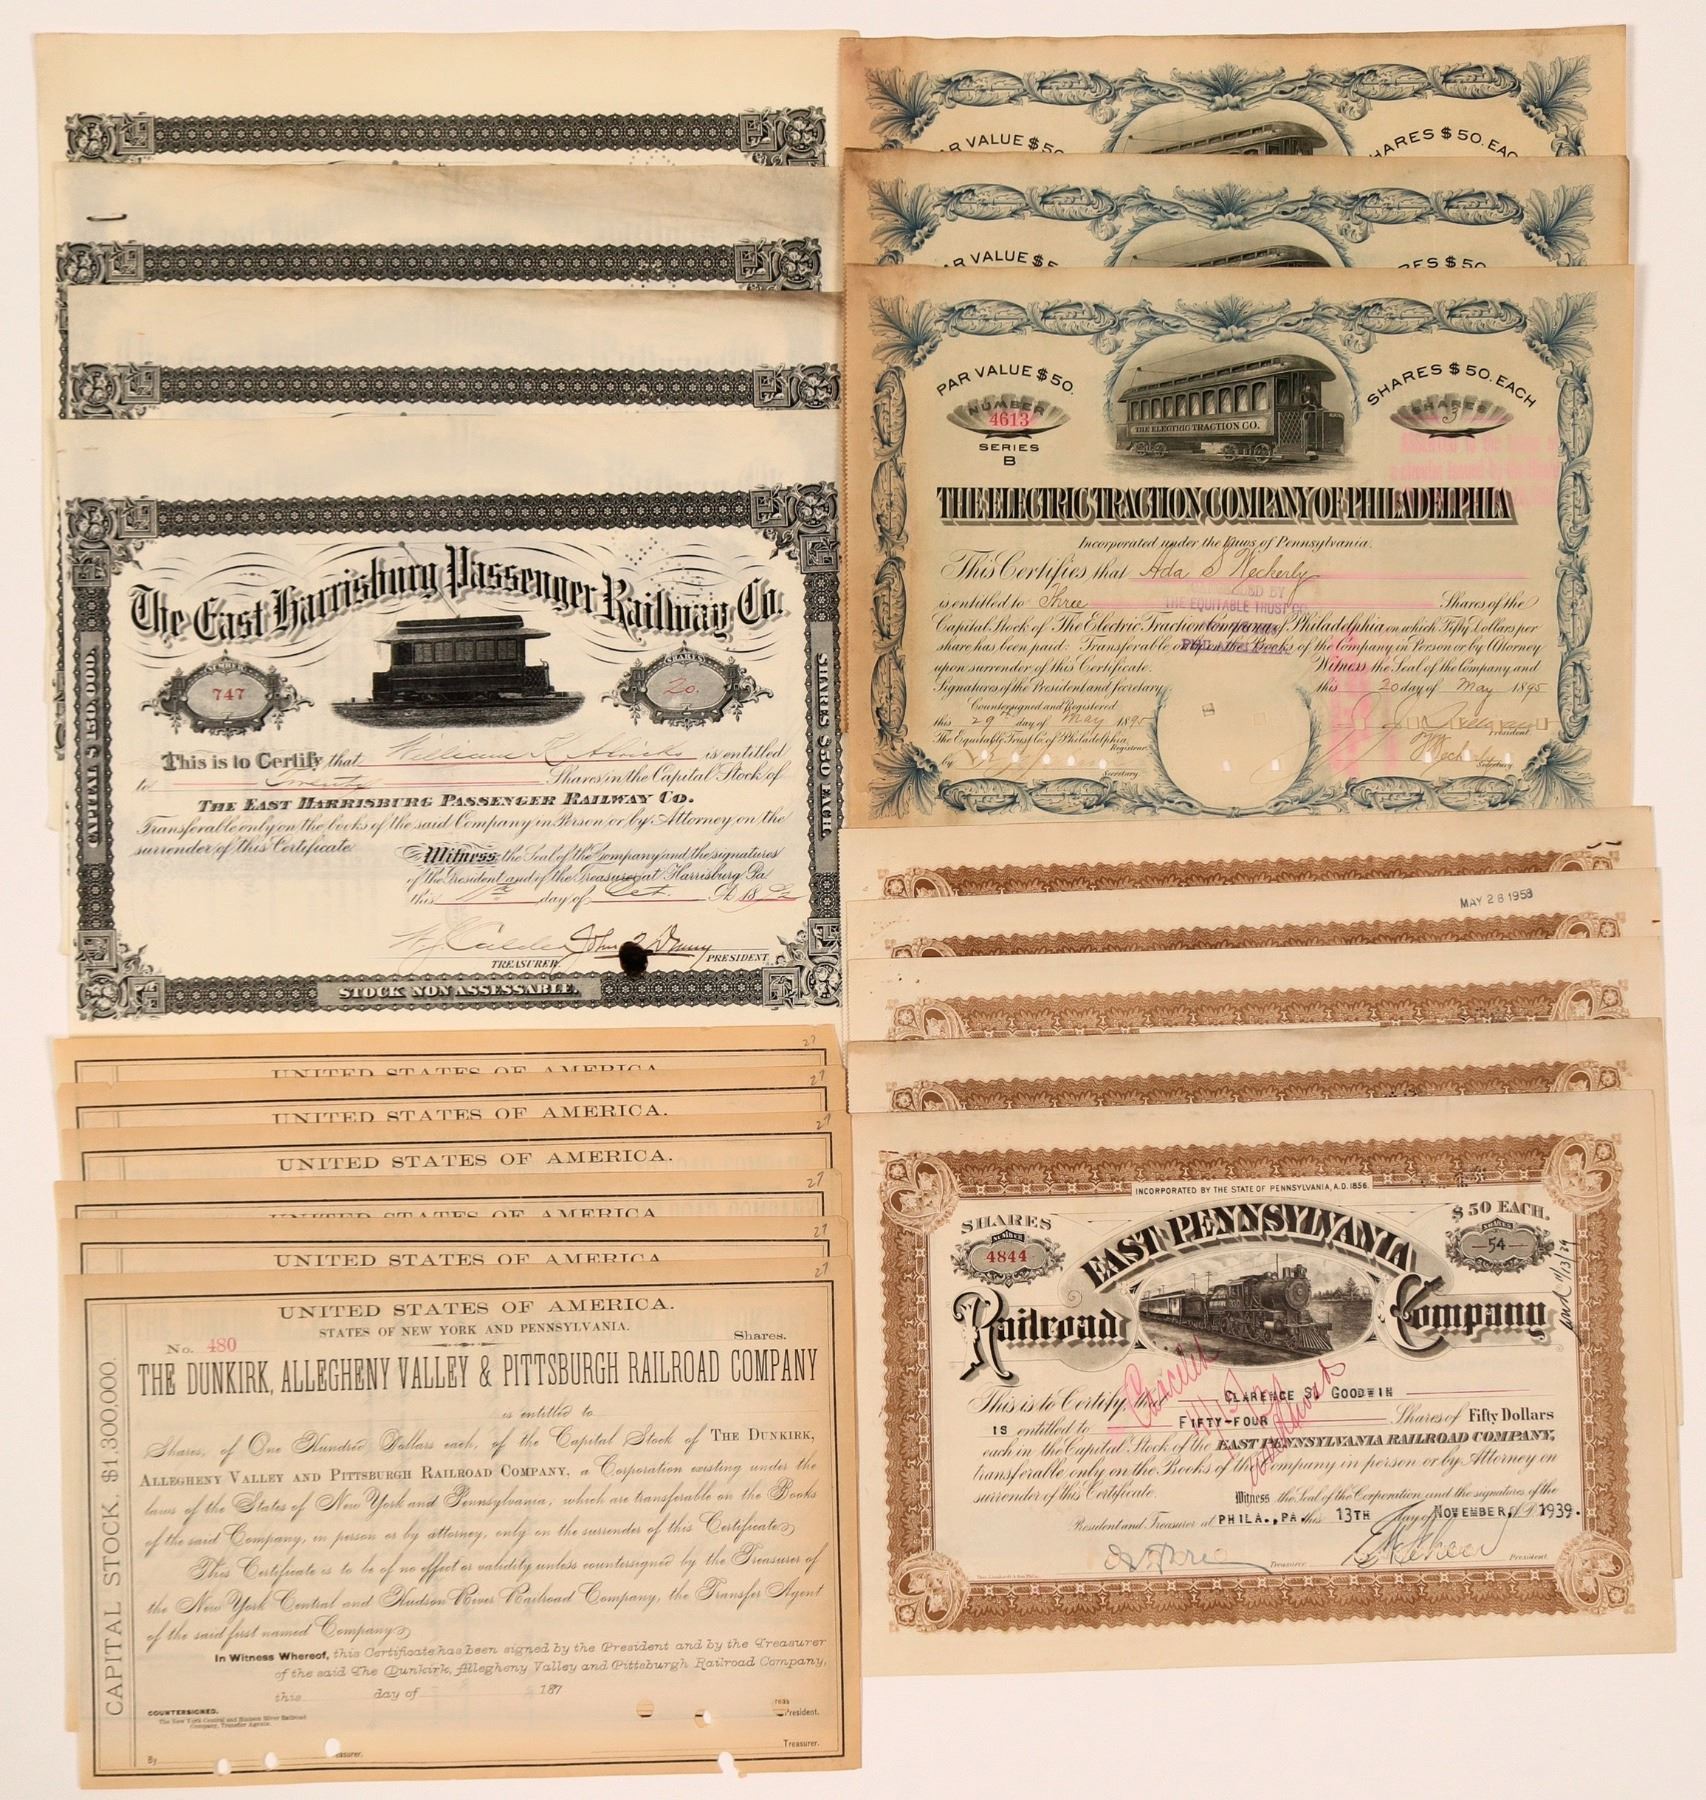 The East Harrisburg Passenger Railway Co.
NUMBER
747
SHARES
20.
CAPITAL
SHARES $50 EACH.
This is to Certify that William K. Alricks is entitled
to Twenty Shares in the Capital Stock of
THE EAST HARRISBURG PASSENGER RAILWAY CO.
Transferable only on the books of the said Company in Person or by Attorney on the
surrender of this Certificate
Witness the Seal of the Company and the signatures
of the President and of the Treasurer at Harrisburg Pa
this day of Oct. A.D. 1892
TREASURER
PRESIDENT
STOCK NON ASSESSABLE.
UNITED STATES OF AMERICA
27
UNITED STATES OF AMERICA.
27
UNITED STATES OF AMERICA.
27
UNITED STATES OF AMERICA
27
UNITED STATES OF AMERICA
27
UNITED STATES OF AMERICA.
27
STATES OF NEW YORK AND PENNSYLVANIA.
No. 480
Shares.
THE DUNKIRK, ALLEGHENY VALLEY & PITTSBURGH RAILROAD COMPANY
CAPITAL STOCK, $1,300,000.
is entitled to
Shares, of One Hundred Dollars each, of the Capital Stock of THE DUNKIRK,
ALLEGHENY VALLEY AND PITTSBURGH RAILROAD COMPANY, a Corporation existing under the
laws of the States of New York and Pennsylvania, which are transferable on the Books
of the said Company, in person or by attorney, only on the surrender of this Certificate
This Certificate is to be of no effect or validity unless countersigned by the Treasurer of
the New York Central and Hudson River Railroad Company, the Transfer Agent
of the said first named Company
In Witness Whereof, this Certificate has been signed by the President and by the Treasurer
of the said The Dunkirk, Allegheny Valley and Pittsburgh Railroad Company,
this day of 187
COUNTERSIGNED.
The New York Central and Hudson River Railroad
Company, Transfer Agents.
By
President.
Treasurer.
PAR VALUE $50
SHARES $50. EAC
PAR VALUE $
PAR VALUE $50.
NUMBER
4613
SERIES
B
SHARES $50. EACH
SHARES
3
THE ELECTRIC TRACTION CO.
THE ELECTRIC TRACTION COMPANY OF PHILADELPHIA
Incorporated under the Laws of Pennsylvania.
This Certifies that Ada S Neckerly
is entitled to Three Shares of the
THE EQUITABLE TRUST CO.
Capital Stock of The Electric Traction Company of Philadelphia on which Fifty Dollars per
share has been paid: Transferable only on the Books of the Company in Person or by Attorney
upon surrender of this Certificate. Witness the Seal of the Company and
Signatures of the President and Secretary this 20 day of May 1895
Countersigned and Registered
this 29th day of May 1895
The Equitable Trust Co. of Philadelphia,
Registrar.
by
Secretary
President
Secretary
MAY 28 1958
INCORPORATED BY THE STATE OF PENNSYLVANIA, A.D. 1856.
SHARES
$50 EACH.
NUMBER
4844
SHARES
54
EAST PENNSYLVANIA
Railroad Company
Cancelled
This is to Certify, that CLARENCE S. GOODWIN
IS entitled to FIFTY-FOUR Shares of Fifty Dollars
each in the Capital Stock of the EAST PENNSYLVANIA RAILROAD COMPANY,
transferable only on the Books of the Company in person or by Attorney on
surrender of this Certificate.
Witness the Seal of the Corporation and the signatures of the
President and Treasurer at PHILA., PA. this 13TH day of NOVEMBER, A.D. 1939.
Treasurer
President